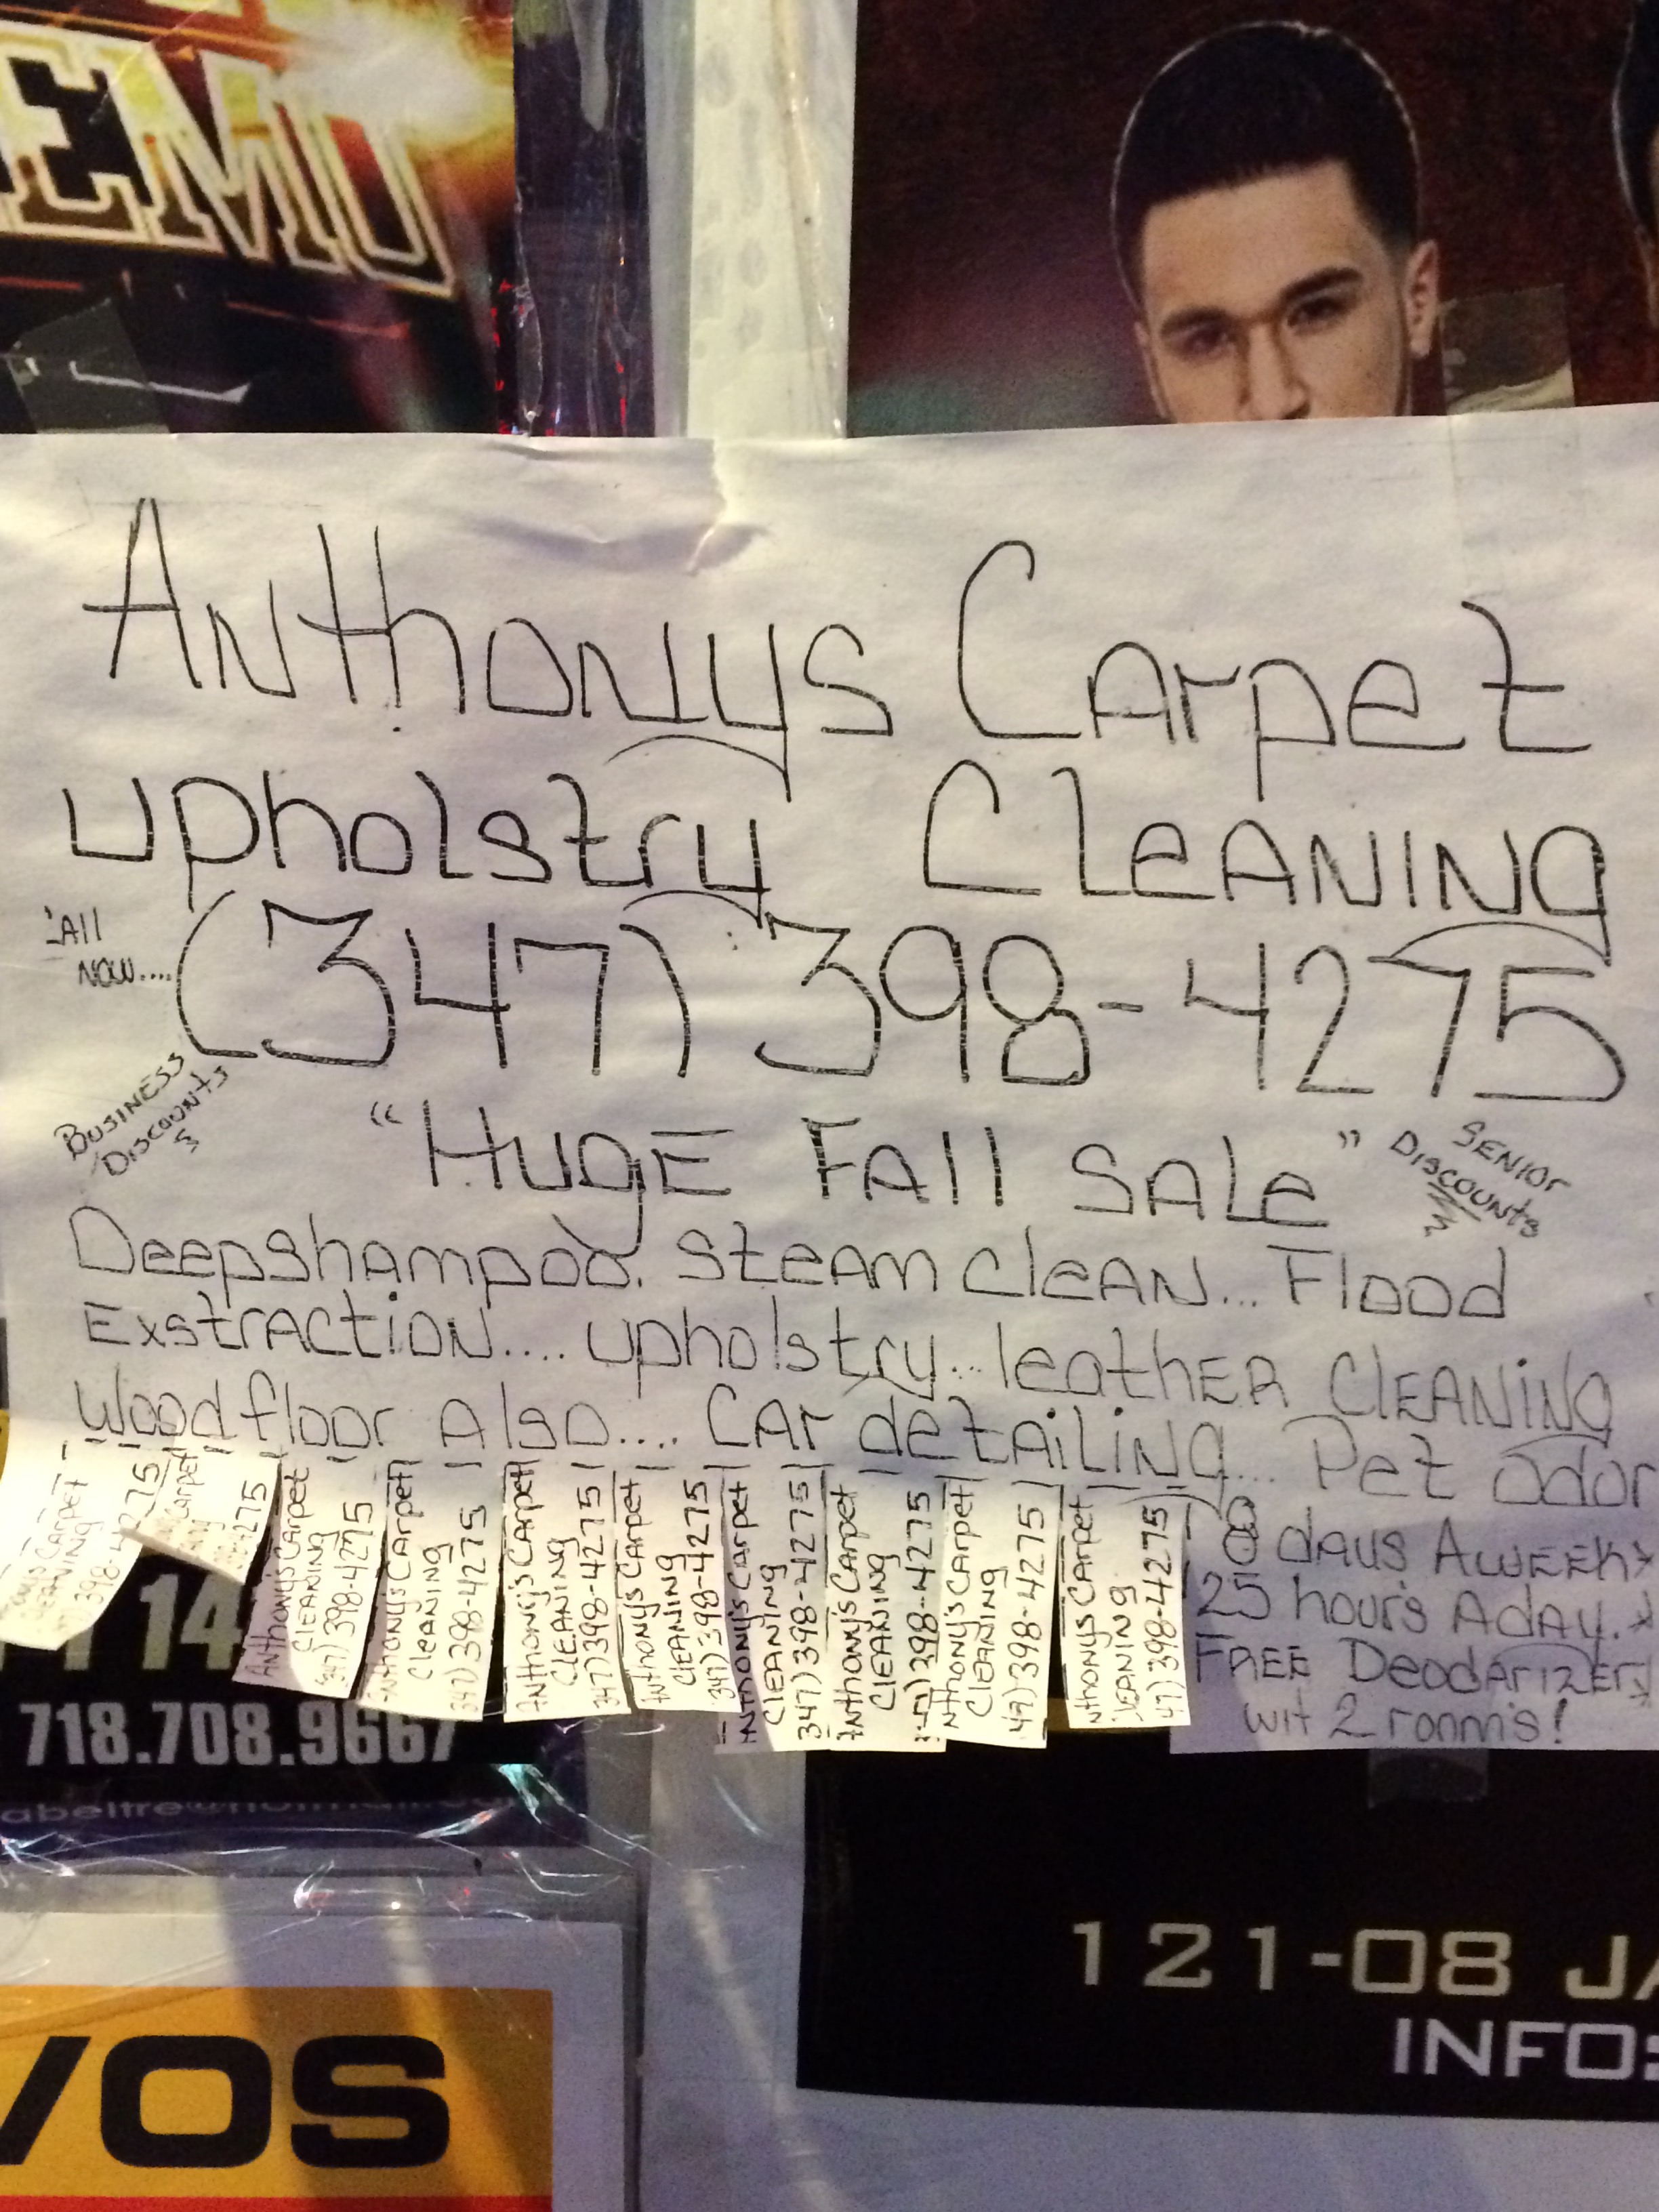 EMU
Anthonys Carpet
upholstry Cleaning
Call
now....
(347) 398-4275
Business
Discounts
"Huge Fall Sale"
Senior
Discounts
Deepshampoo. steam clean... Flood
Exstraction.... upholstry... leather Cleaning
Wood floor Also.... Car detailing... Pet odor
8 days Aweek
25 hours Aday.
Free Deodarizer
wit 2 ronm's!
Carpet
398-4275
Carpet
275
Anthony's Carpet
Cleaning
347) 398-4275
Anthony's Carpet
Cleaning
347) 398-4275
Anthony's Carpet
Cleaning
347) 398-4275
Anthony's Carpet
Cleaning
347) 398-4275
Anthony's Carpet
Cleaning
347) 398-4275
Anthony's Carpet
Cleaning
347) 398-4275
nthony's Carpet
Cleaning
47) 398-4275
nthonys Carpet
leaning
47) 398-4275
14
718.708.9667
121-08 JA
INFO:
VOS